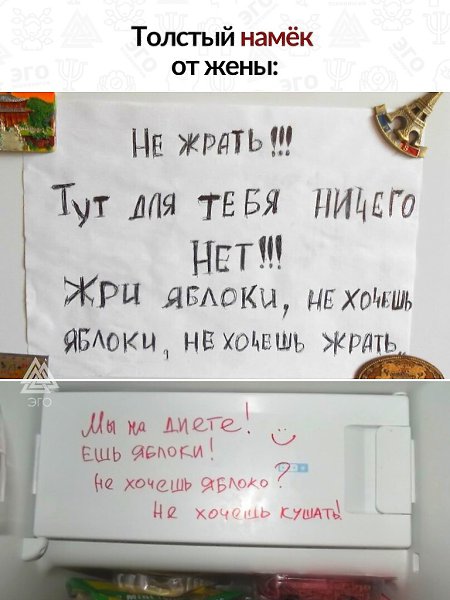 Толстый намёк
от жены:
НЕ ЖРАТЬ!!!
Тут для тебя ничего
НЕТ!!!
Жри яблоки, не хочешь
яблоки, не хочешь жрать
эго
Мы на диете!
Ешь яблоки!
Не хочешь яблоко?
Не хочешь кушать!